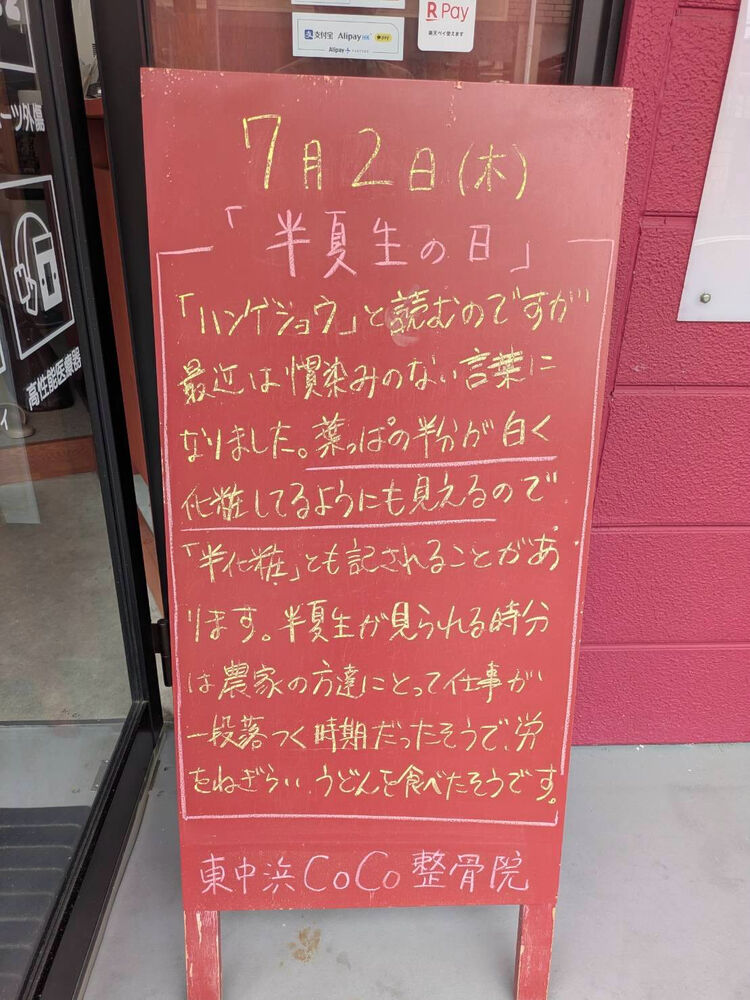 支付宝 Alipay HK
Alipay+ PARTNER
R Pay
楽天ペイ使えます
ーツ外傷
高性能医療器
7月2日(木)
「半夏生の日」
「ハンゲショウ」と読むのですが
最近は慣染みのない言葉に
なりました。葉っぱの半分が白く
化粧してるようにも見えるので
「半化粧」とも記されることがあ
ります。半夏生が見られる時分
は農家の方達にとって仕事が
一段落つく時期だったそうで、労
をねぎらい、うどんを食べたそうです。
東中浜CoCo整骨院